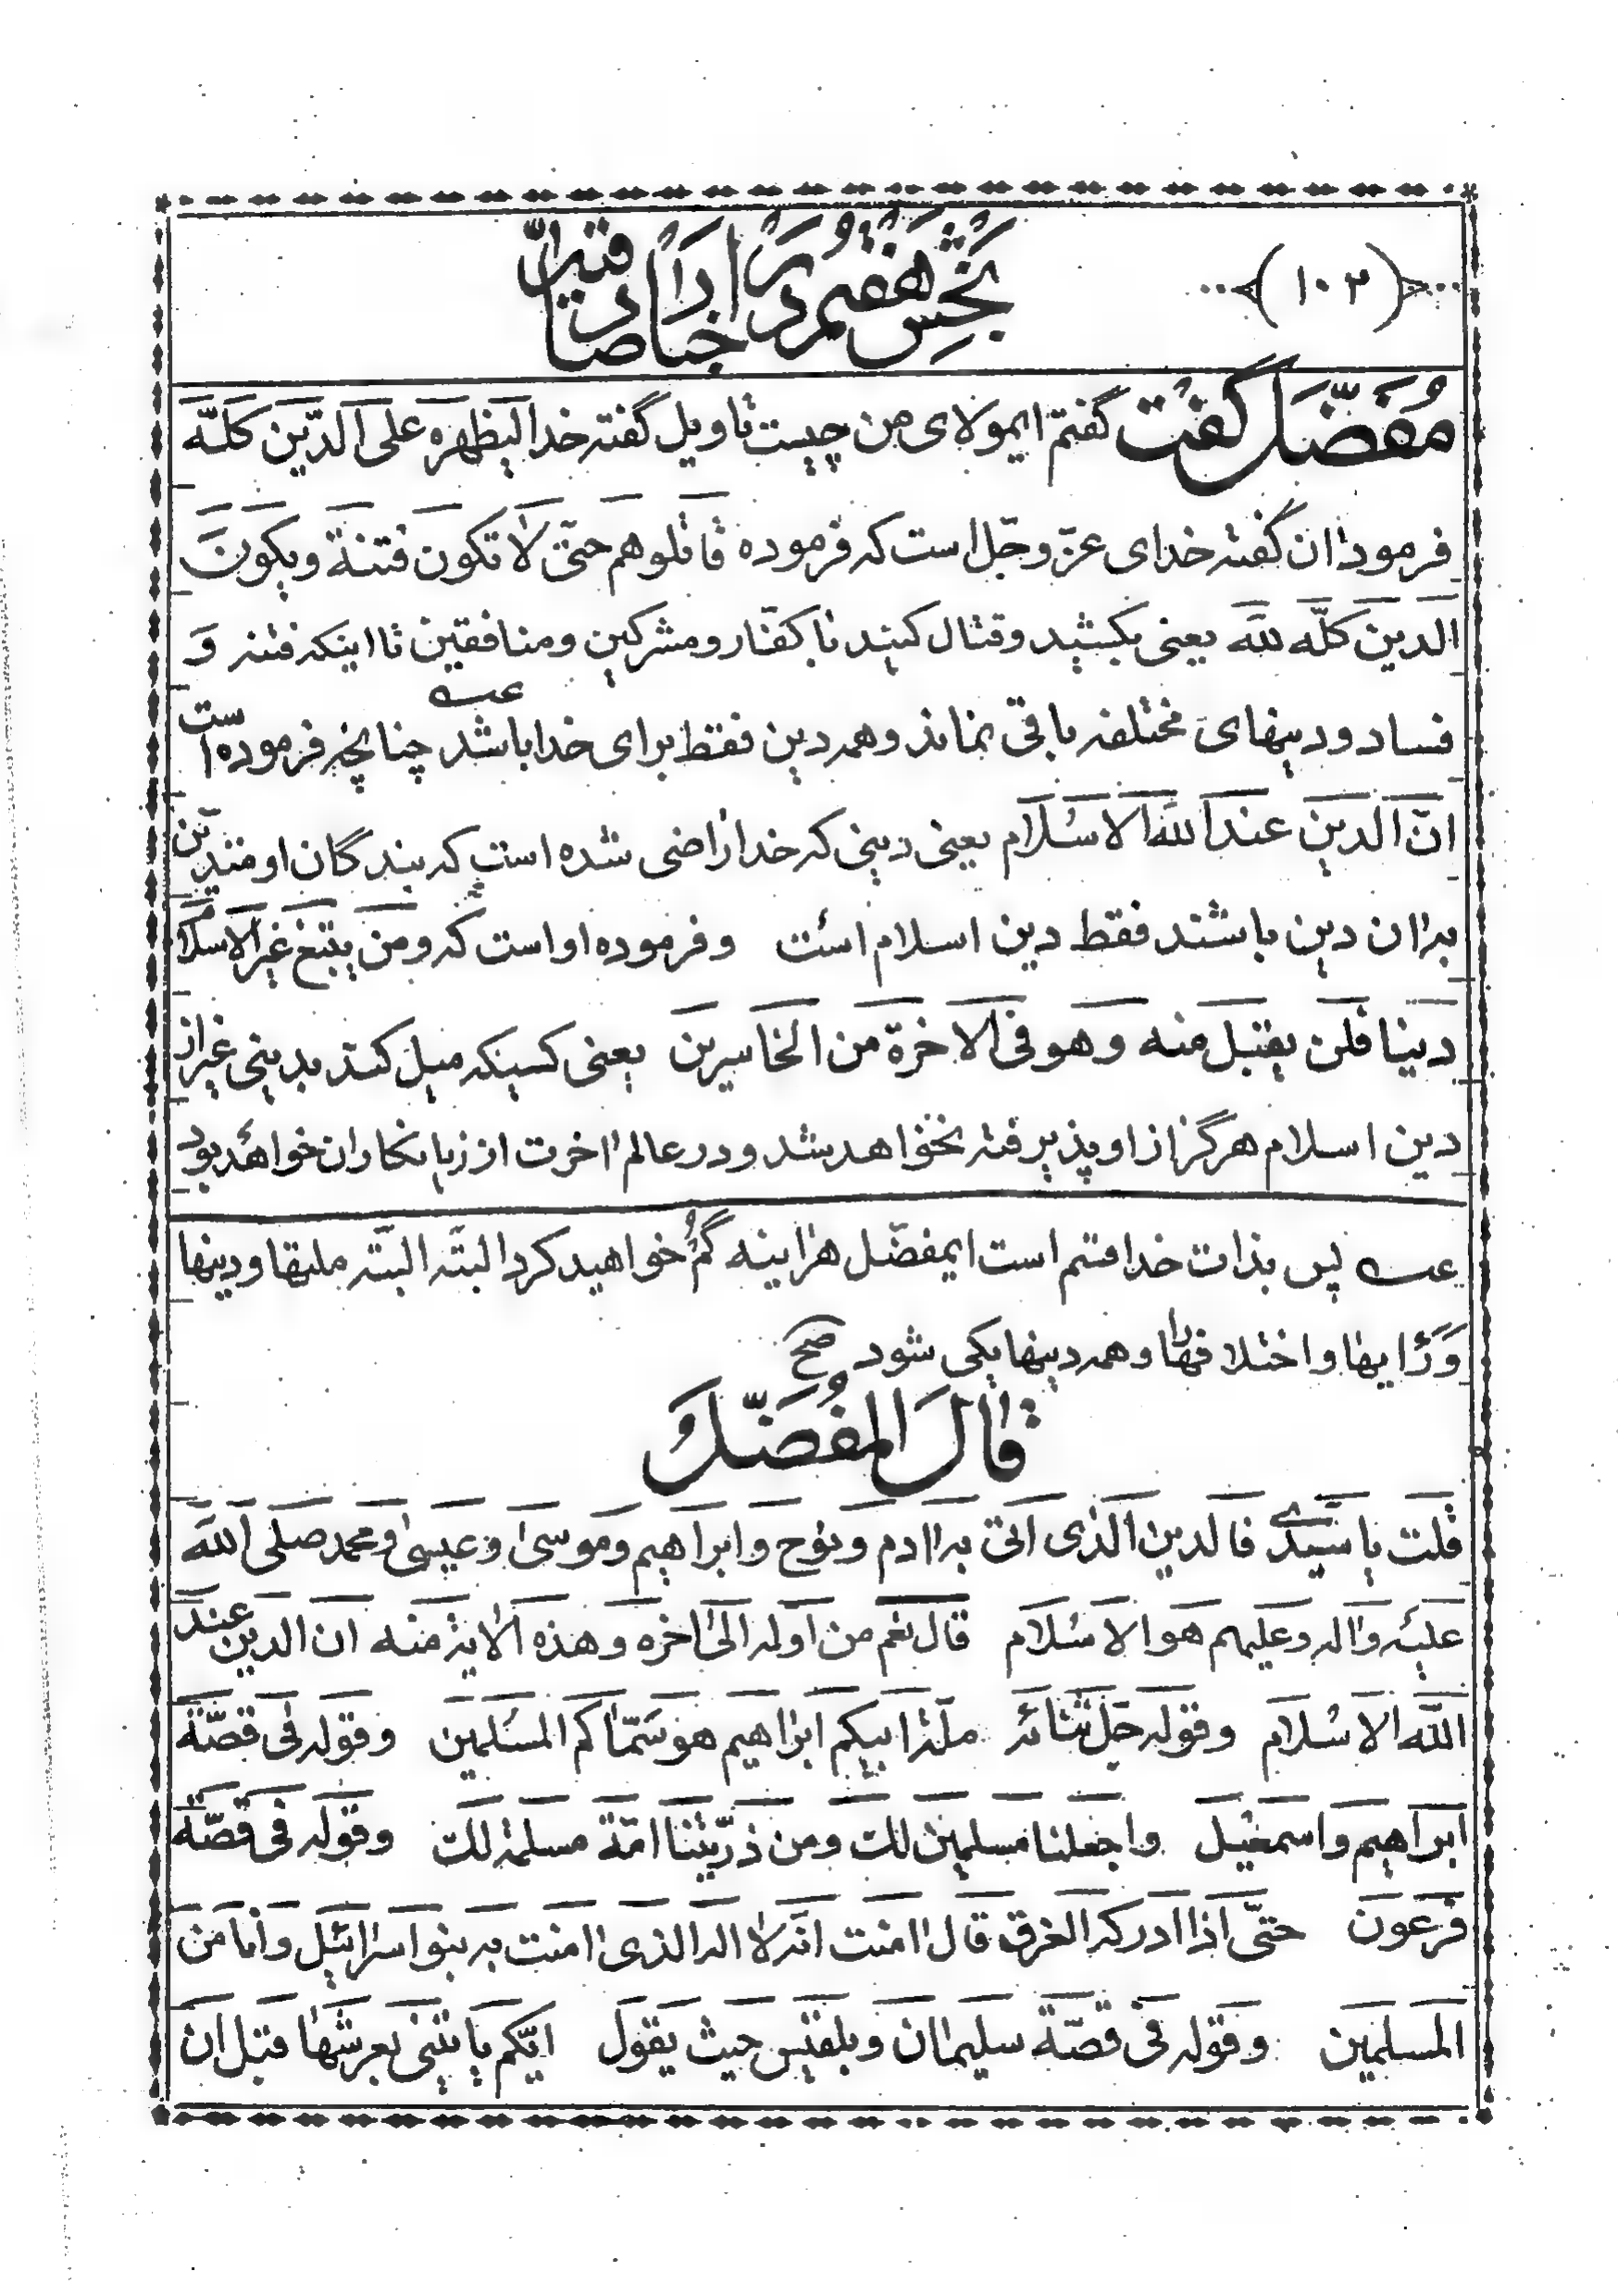 (۱۰۲)
بخش هفتم در اخبار صادقین
مُفَضَّل گفت گفتم ایمولای من چیست تاویل گفته خدا لیظهره علی الدّین کلّه
فرمود ان گفته خدای عزّ وجلّ است که فرموده قاتلوهم حتّی لا تکون فتنة ویکون
الدین کلّه لله یعنی بکشید وقتال کنید با کفّار ومشرکین ومنافقین تا اینکه فتنه وَ
فساد ودینهای مختلفه باقی نماند وهمه دین فقط برای خدا باشد عـه چنانچه فرموده است
انّ الدین عند الله الاسلام یعنی دینی که خدا راضی شده است که بندگان او متدین
بران دین باشند فقط دین اسلام است وفرموده او است که ومن یبتغ غیر الاسلام
دینا فلن یقبل منه وهو فی الاخرة من الخاسرین یعنی کسیکه میل کند بدینی غیر از
دین اسلام هرگز از او پذیرفته نخواهد شد ودر عالم اخرت از زیانکاران خواهد بود
عـه پس بذات خدا قسم است ایمفضّل هراینه گُم خواهید کرد البتّه البتّه ملتها ودینها
وَرَایها واختلافها را وهمه دینها یکی شود صح
قال المُفَضَّل
قلت یا سیّدی فالدین الذی اتی به ادم ونوح وابراهیم وموسی وعیسی ومحمد صلی الله
علیه واله وعلیهم هو الاسلام قال نعم من اوله الی اخره وهذه الایة منه ان الدین عند
الله الاسلام وقوله جلّ شانه ملة ابیکم ابراهیم هو سمّاکم المسلمین وقوله فی قصّة
ابراهیم واسمعیل واجعلنا مسلمین لک ومن ذرّیتنا امّة مسلمة لک وقوله فی قصّة
فرعون حتّی اذا ادرکه الغرق قال امنت انّه لا اله الذی امنت به بنو اسرائیل وانا من
المسلمین وقوله فی قصّة سلیمان وبلقیس حیث یقول ایّکم یاتینی بعرشها قبل ان